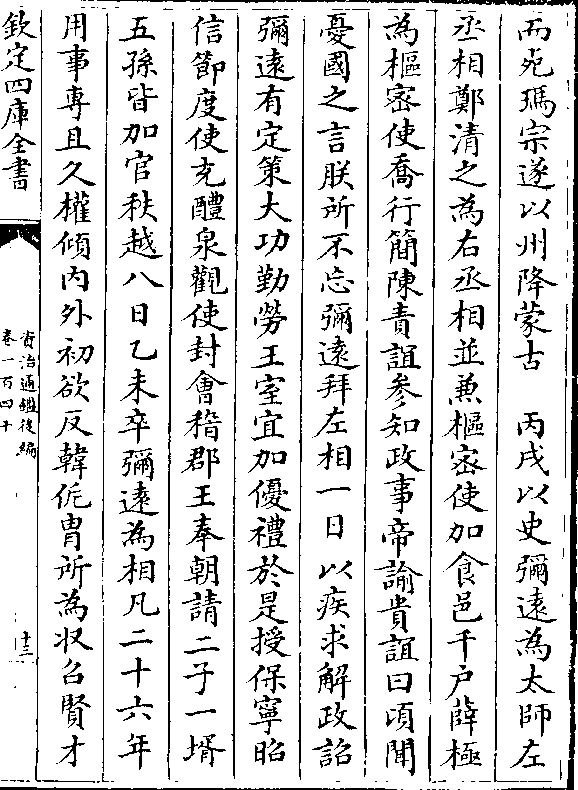 而宛瑪宗遂以州降蒙古　丙戌以史彌遠為太師左
丞相鄭清之為右丞相並兼樞宻使加食邑千户薛極
為樞宻使喬行簡陳貴誼参知政事帝諭貴誼曰頃聞
憂國之言朕所不忘彌遠拜左相一日以疾求解政詔
彌遠有定策大功勤勞王室宜加優禮於是授保寧昭
信節度使充醴泉觀使封會稽郡王奉朝請二子一壻
五孫皆加官秩越八日乙未卒彌遠為相凡二十六年
用事専且久權傾内外初欲反韓侂胄所為収召賢才
欽定四庫全書
資治通鑑後編
卷一百四十
十三